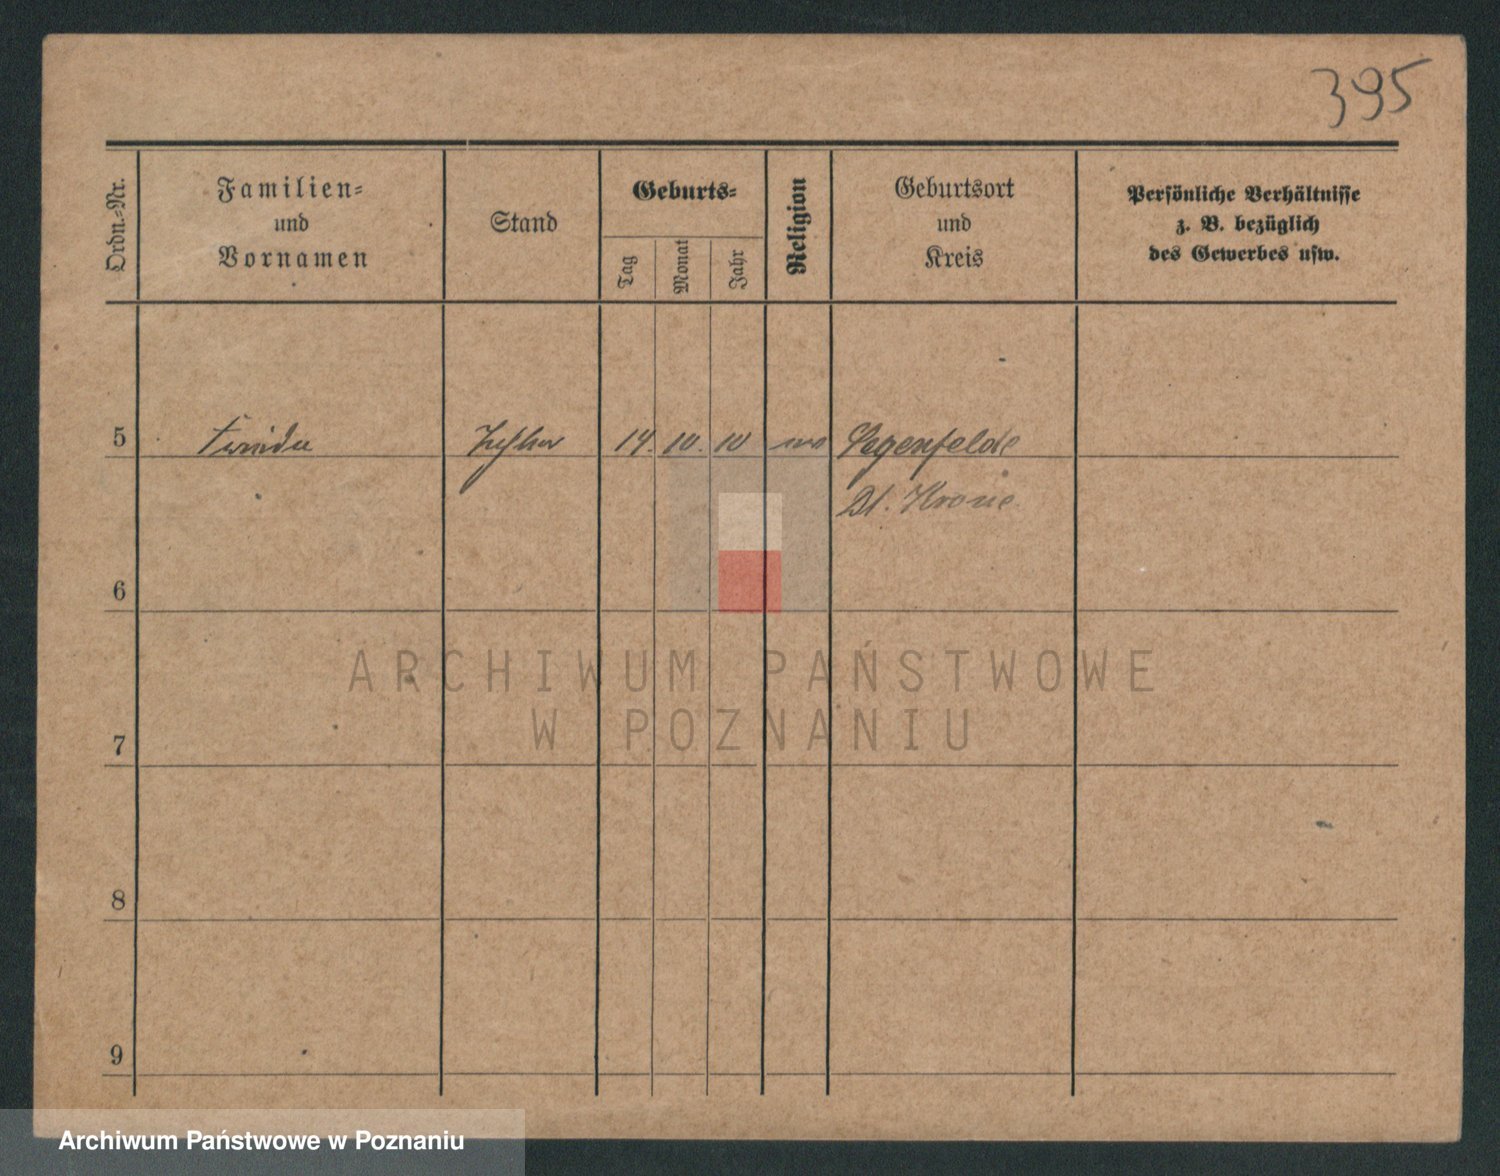 395
Ordn.-Nr.
Familien-
und
Vornamen
Stand
Geburts-
Tag
Monat
Jahr
Religion
Geburtsort
und
Kreis
Persönliche Verhältnisse
z. B. bezüglich
des Gewerbes usw.
5 14. 10. 10
Dt. Krone
6
7
8
9
ARCHIWUM PAŃSTWOWE
W POZNANIU
Archiwum Państwowe w Poznaniu